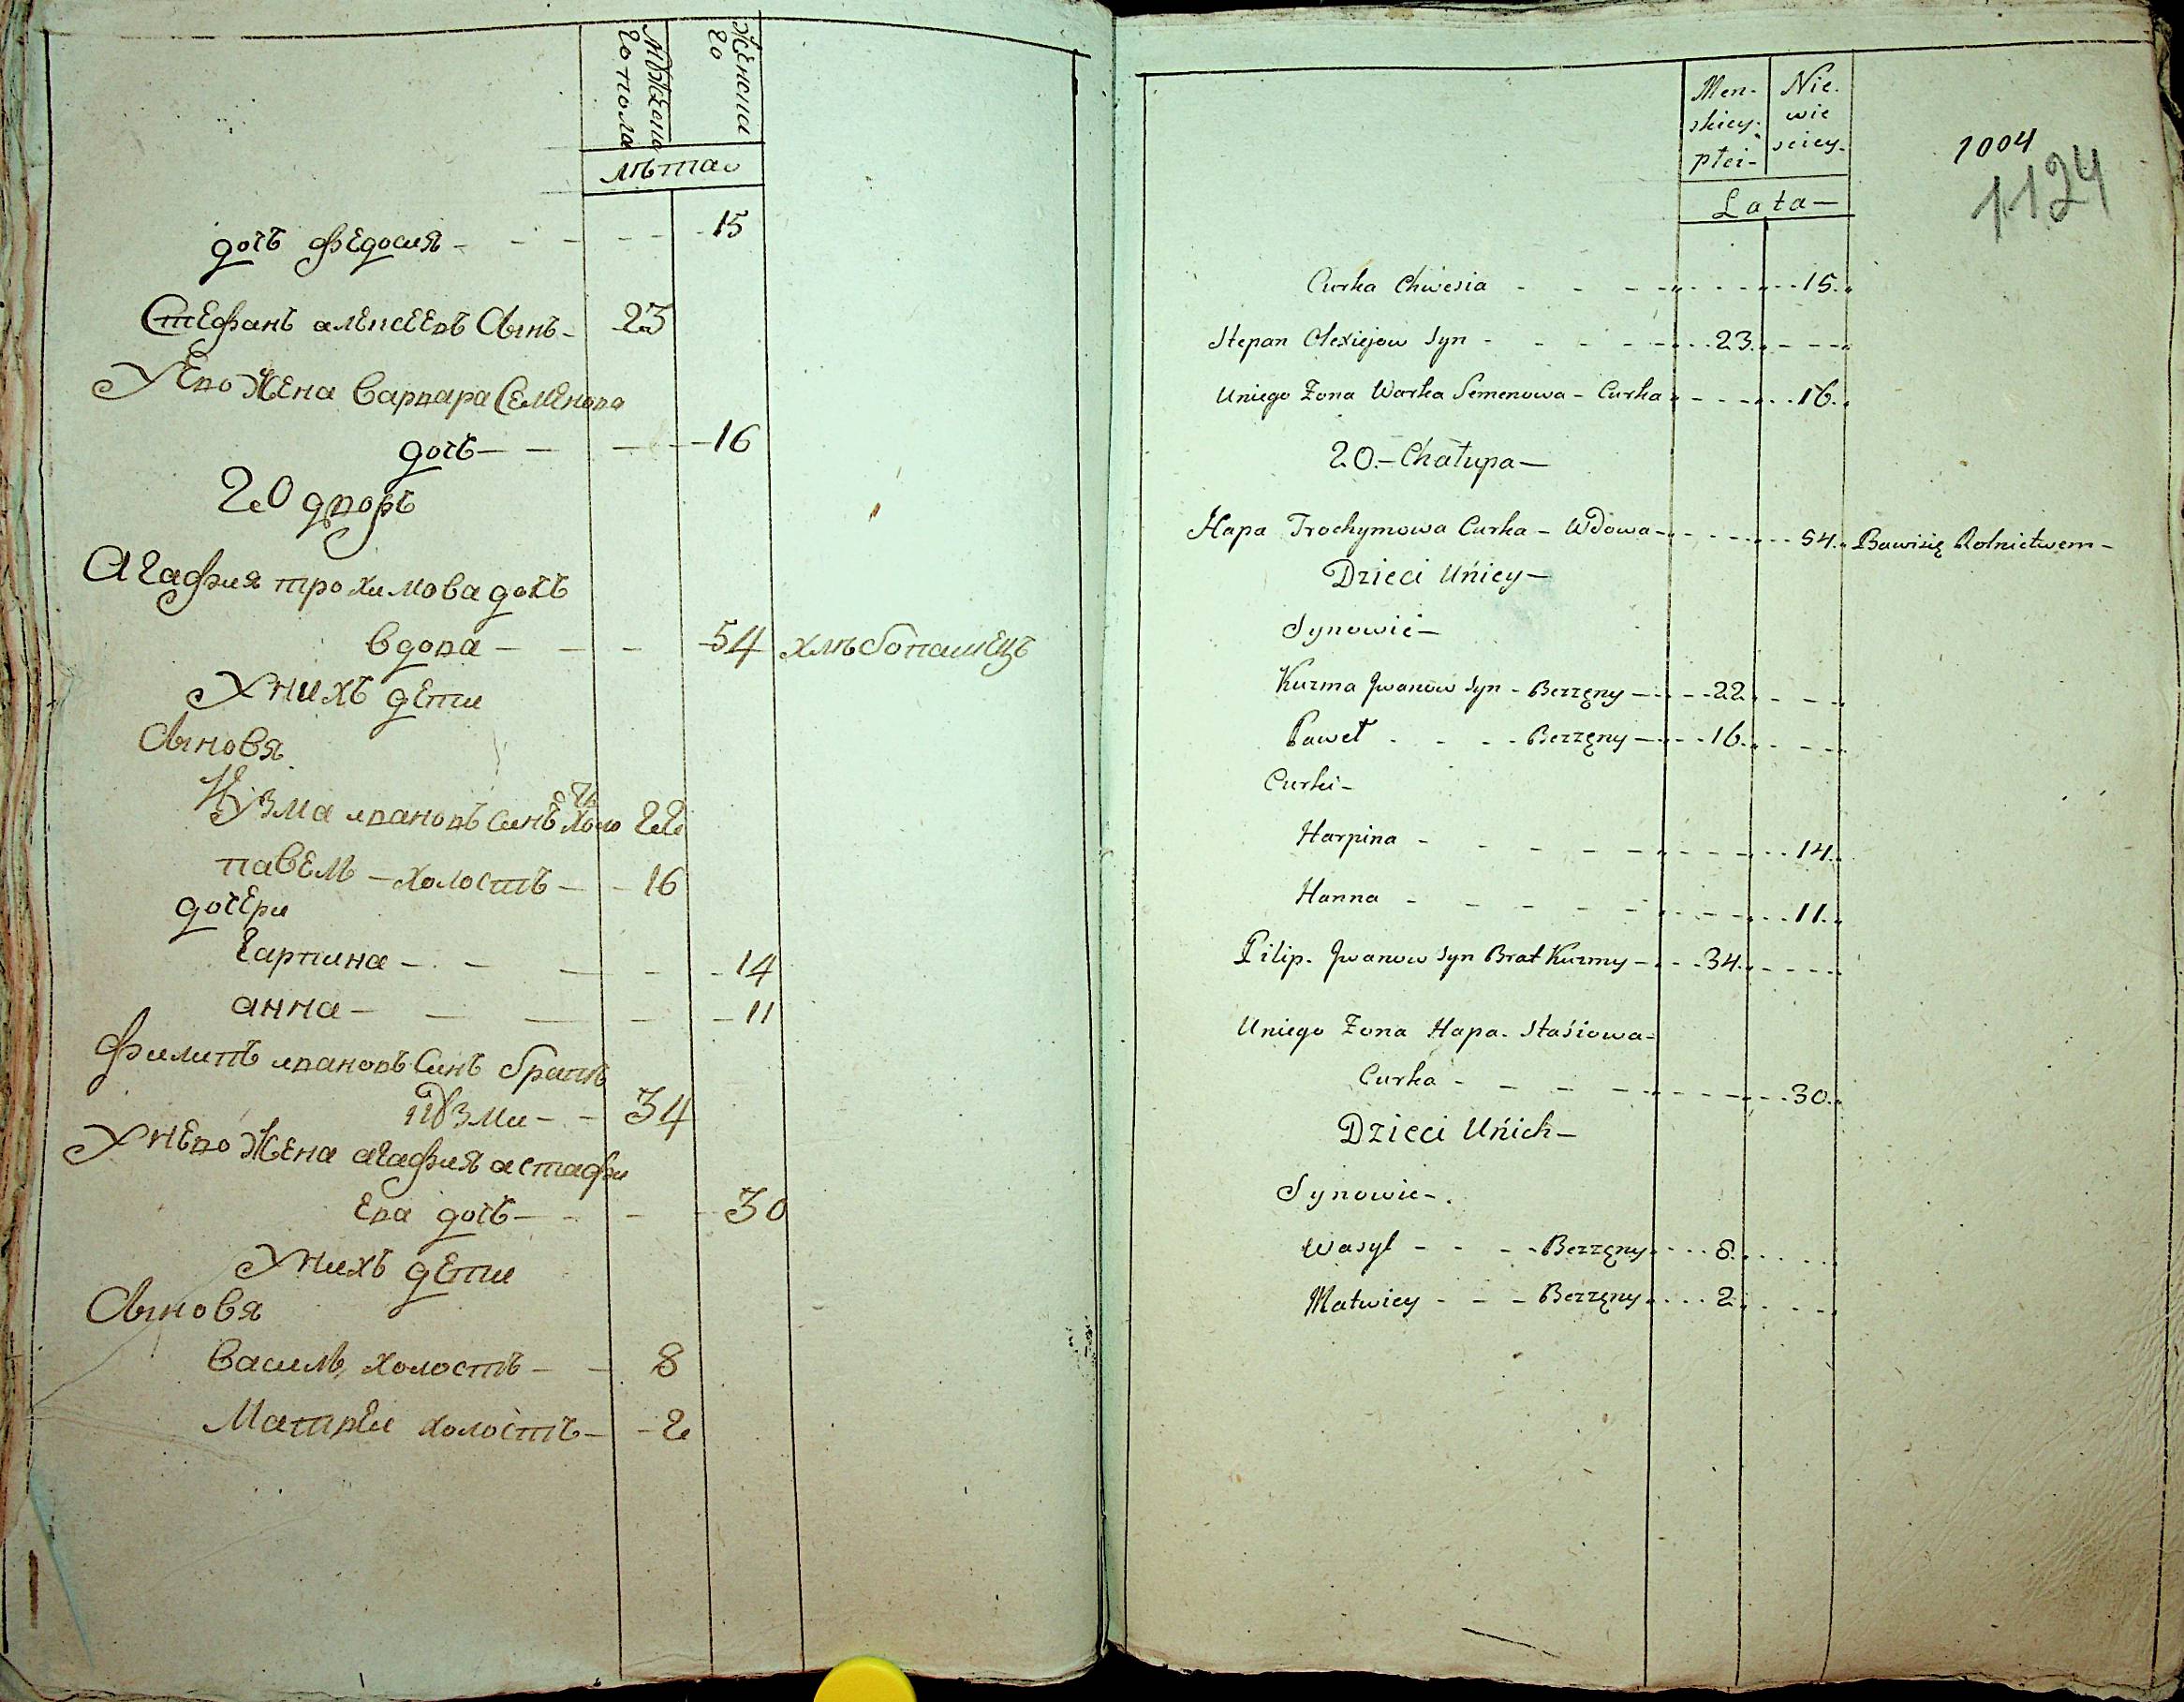 Мужеска
го пола
Женска
го
лѣта
дочь федосия - - - - - 15
Стефанъ алексеевъ Сынъ - 23
У Ево Жена варвара Семенова
дочь - - - - 16
20 дворъ
Агафия трохимова дочь
вдова - - - 54 хлѣбопашецъ
У нихъ дети
Сыновя
Кузма ивановъ синъ холостъ 22
павелъ - холостъ - - 16
дочери
гарпина - - - - 14
анна - - - - - 11
Филипъ ивановъ Синъ братъ
кузми - - 34
У нево Жена агафия астафи
ева дочь - - - - 30
У нихъ дети
Сыновя
василь холостъ - - 8
Матвеи холостъ - - 2
Men-
skiey-
płci-
Nie-
wie
sciey-
Lata-
1004
1124
Curka Chwesia - - - - - 15.
Stepan Olexiejow Syn - - - - - 23. - - -
Uniego Zona Warka Semenowa - Curka - - - - 16.
20.- Chałupa-
Hapa Trochymowa Curka - Wdowa - - - - 54. Bawisię Rolnictwem-
Dzieci Uniey-
Synowie-
Kuzma Jwanow Syn - Bezzęny - - - 22. - - -
Paweł - - - Bezzęny - - - 16. - - -
Curki-
Harpina - - - - - - - - 14.
Hanna - - - - - - - - 11.
Pilip. Jwanow Syn Brat Kuzmy - - - 34. - - -
Uniego Zona Hapa. Staśiowa-
Curka - - - - - - - 30.
Dzieci Unich-
Synowie-.
Wasyl - - - Bezzęny - - - 8. - - -
Matwiey - - - Bezzęny - - - 2. - - -